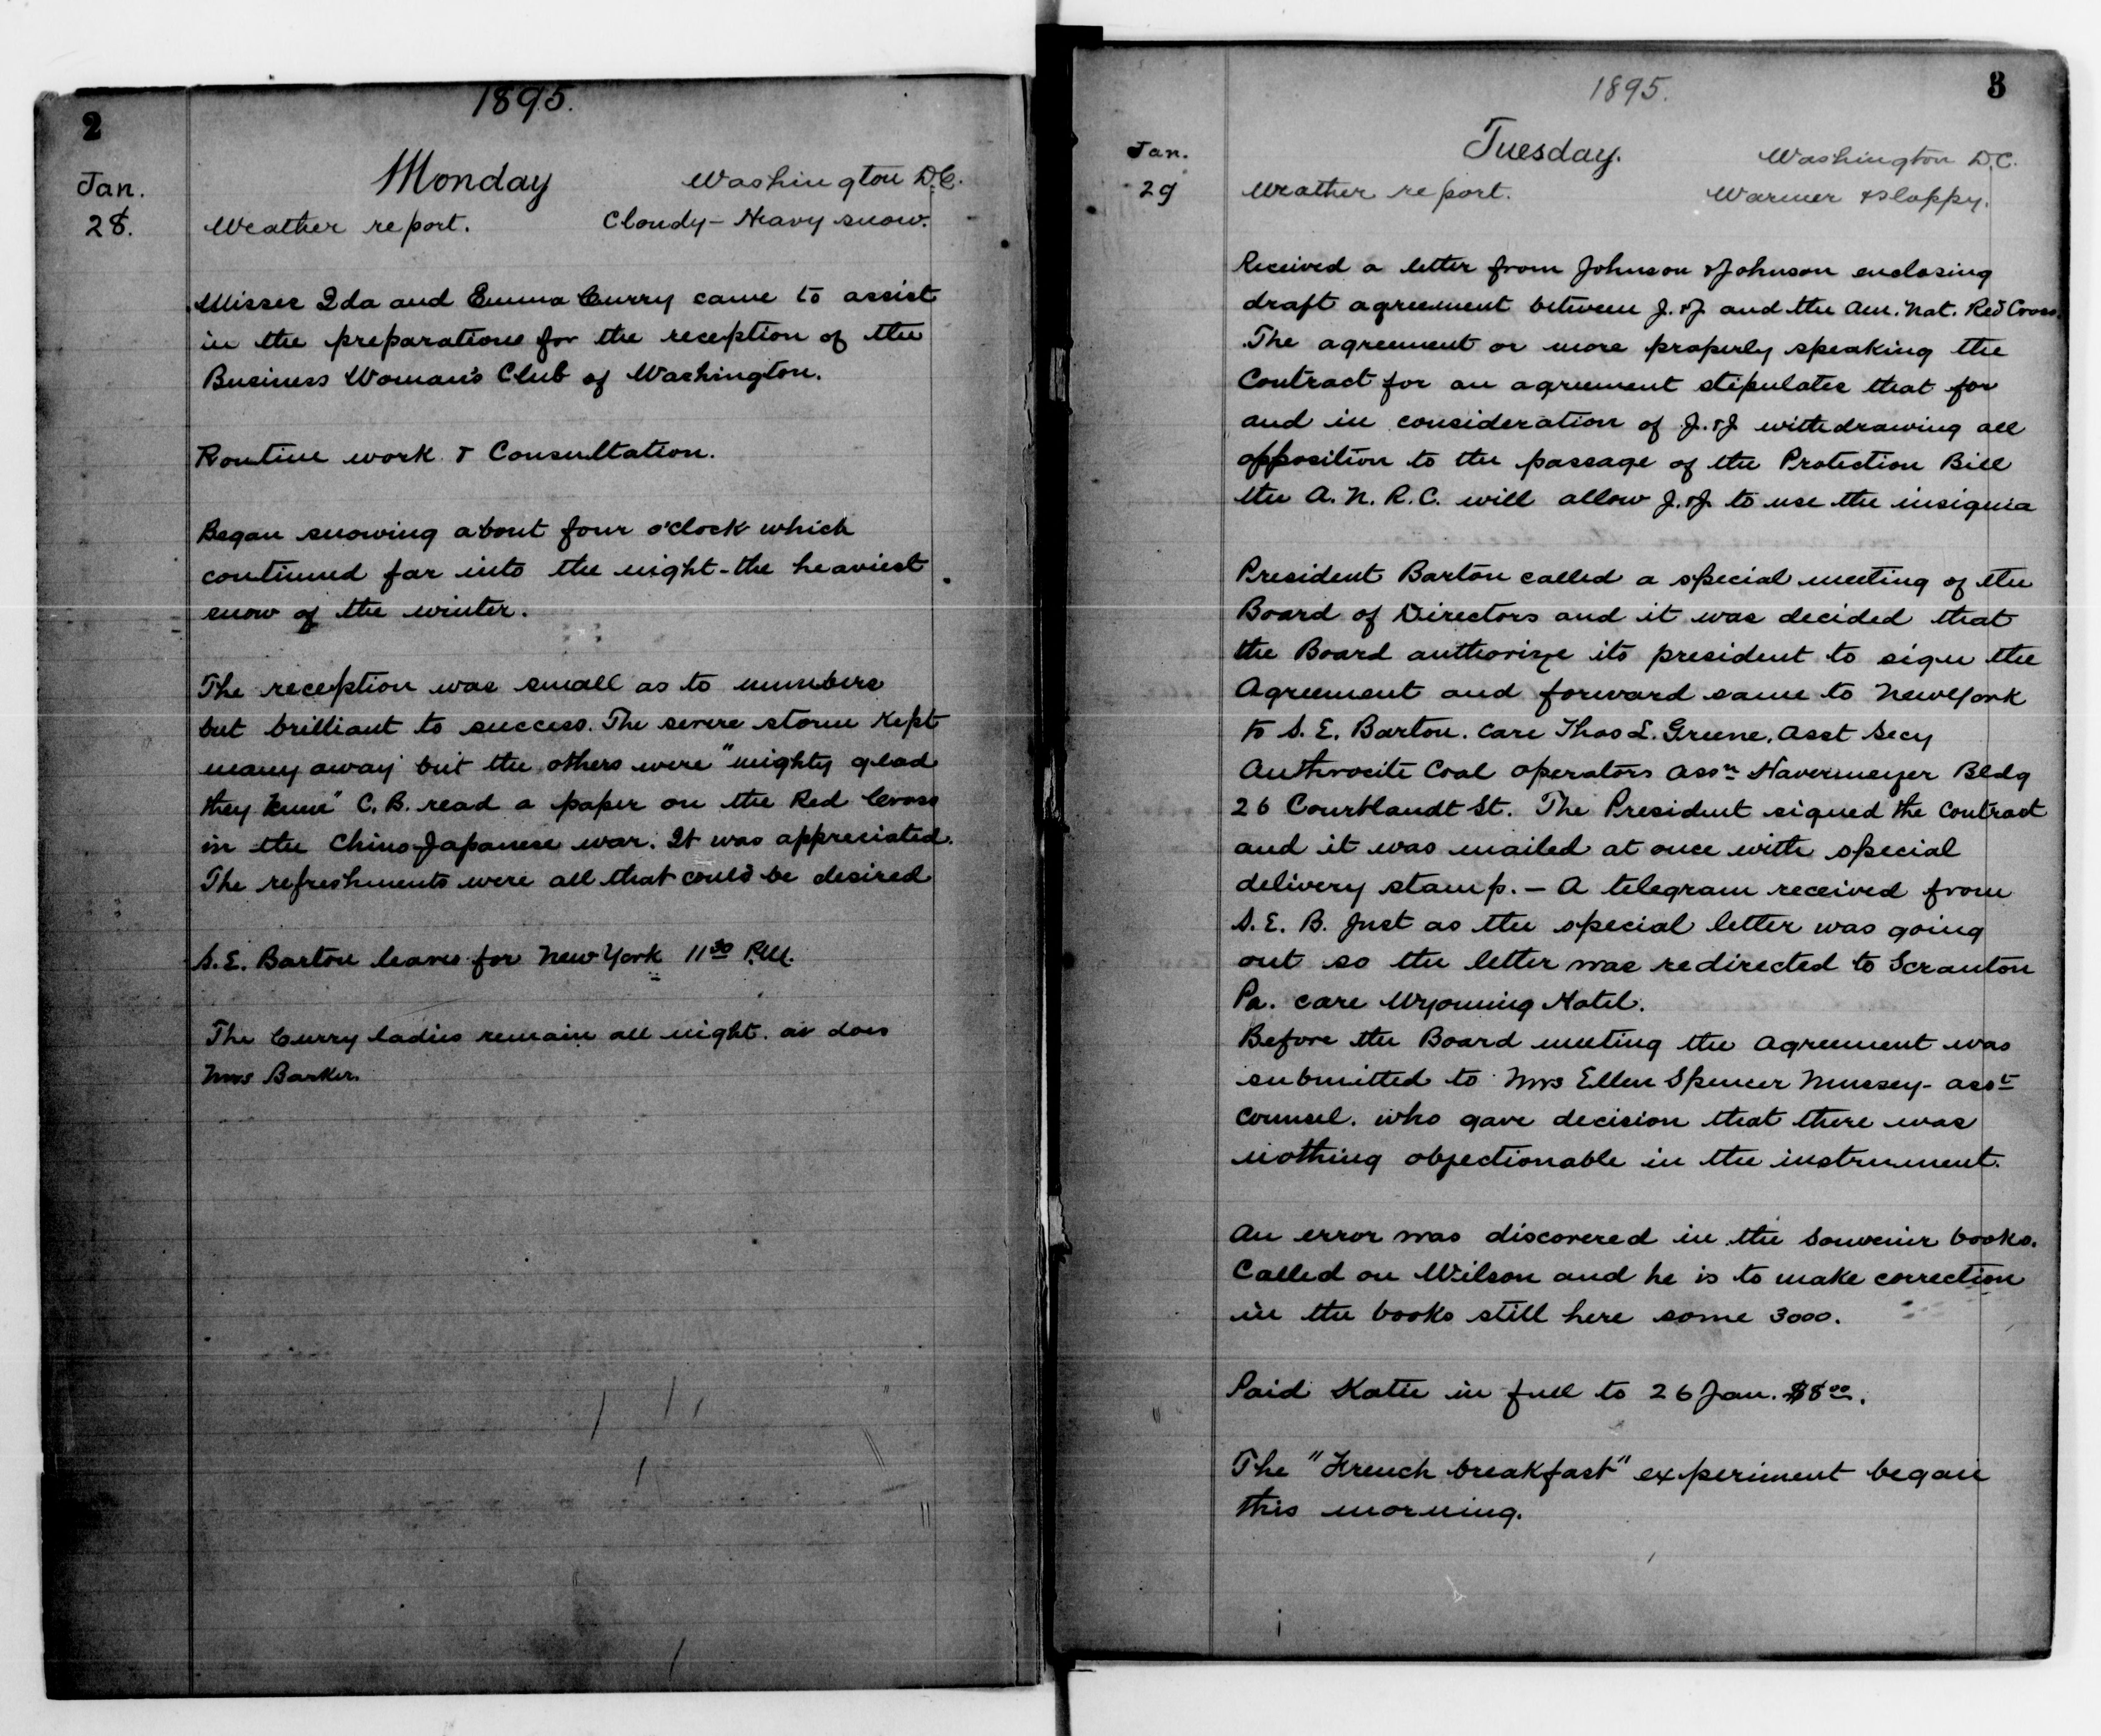 2
1895.
Jan.
28.
Monday
Washington D.C.
Weather report.
Cloudy – Heavy snow.
Misses Ida and Emma Curry came to assist
in the preparations for the reception of the
Business Woman's Club of Washington.
Routine work & Consultation.
Began snowing about four o'clock which
continued far into the night – the heaviest
snow of the winter.
The reception was small as to numbers
but brilliant to success. The severe storm kept
many away but the others were "mighty glad
they " C. B. read a paper on the Red Cross
in the Chino-Japanese war. It was appreciated.
The refreshments were all that could be desired
S. E. Barton leaves for New York 11 30 P.M.
The Curry ladies remain all night. as does
Mrs Barker.
3
1895.
Jan.
29
Tuesday.
Washington D.C.
Weather report.
Warmer & sloppy.
Received a letter from Johnson & Johnson enclosing
draft agreement between J. & J. and the Am. Nat. Red Cross.
The agreement or more properly speaking the
Contract for an agreement stipulates that for
and in consideration of J. & J. withdrawing all
opposition to the passage of the Protection Bill
the A. N. R. C. will allow J. & J. to use the insignia
President Barton called a special meeting of the
Board of Directors and it was decided that
the Board authorize its president to sign the
Agreement and forward same to New York
to S. E. Barton. Care Thos L. Greene. Asst Secy
Anthrocite Coal operators Assn Havermeyer Bldg
26 Courtlandt St. The President signed the contract
and it was mailed at once with special
delivery stamp. – A telegram received from
S. E. B. Just as the special letter was going
out so the letter was redirected to Scranton
Pa. care Wyoming Hotel.
Before the Board meeting the Agreement was
submitted to Mrs Ellen Spencer Mussey – asst
Counsel. who gave decision that there was
nothing objectionable in the instrument.
An error was discovered in the Souvenir books.
Called on Wilson and he is to make correction
in the books still here some 3000.
Paid Katie in full to 26 Jan. $8 00.
The "French breakfast" experiment began
this morning.